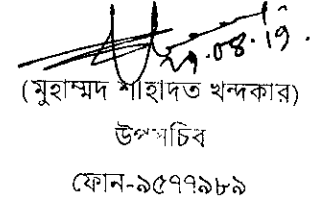 ২৭.০৪.১৭.
(মুহাম্মদ শাহাদত খন্দকার)
উপসচিব
ফোন-৯৫৭৭৯৮৯